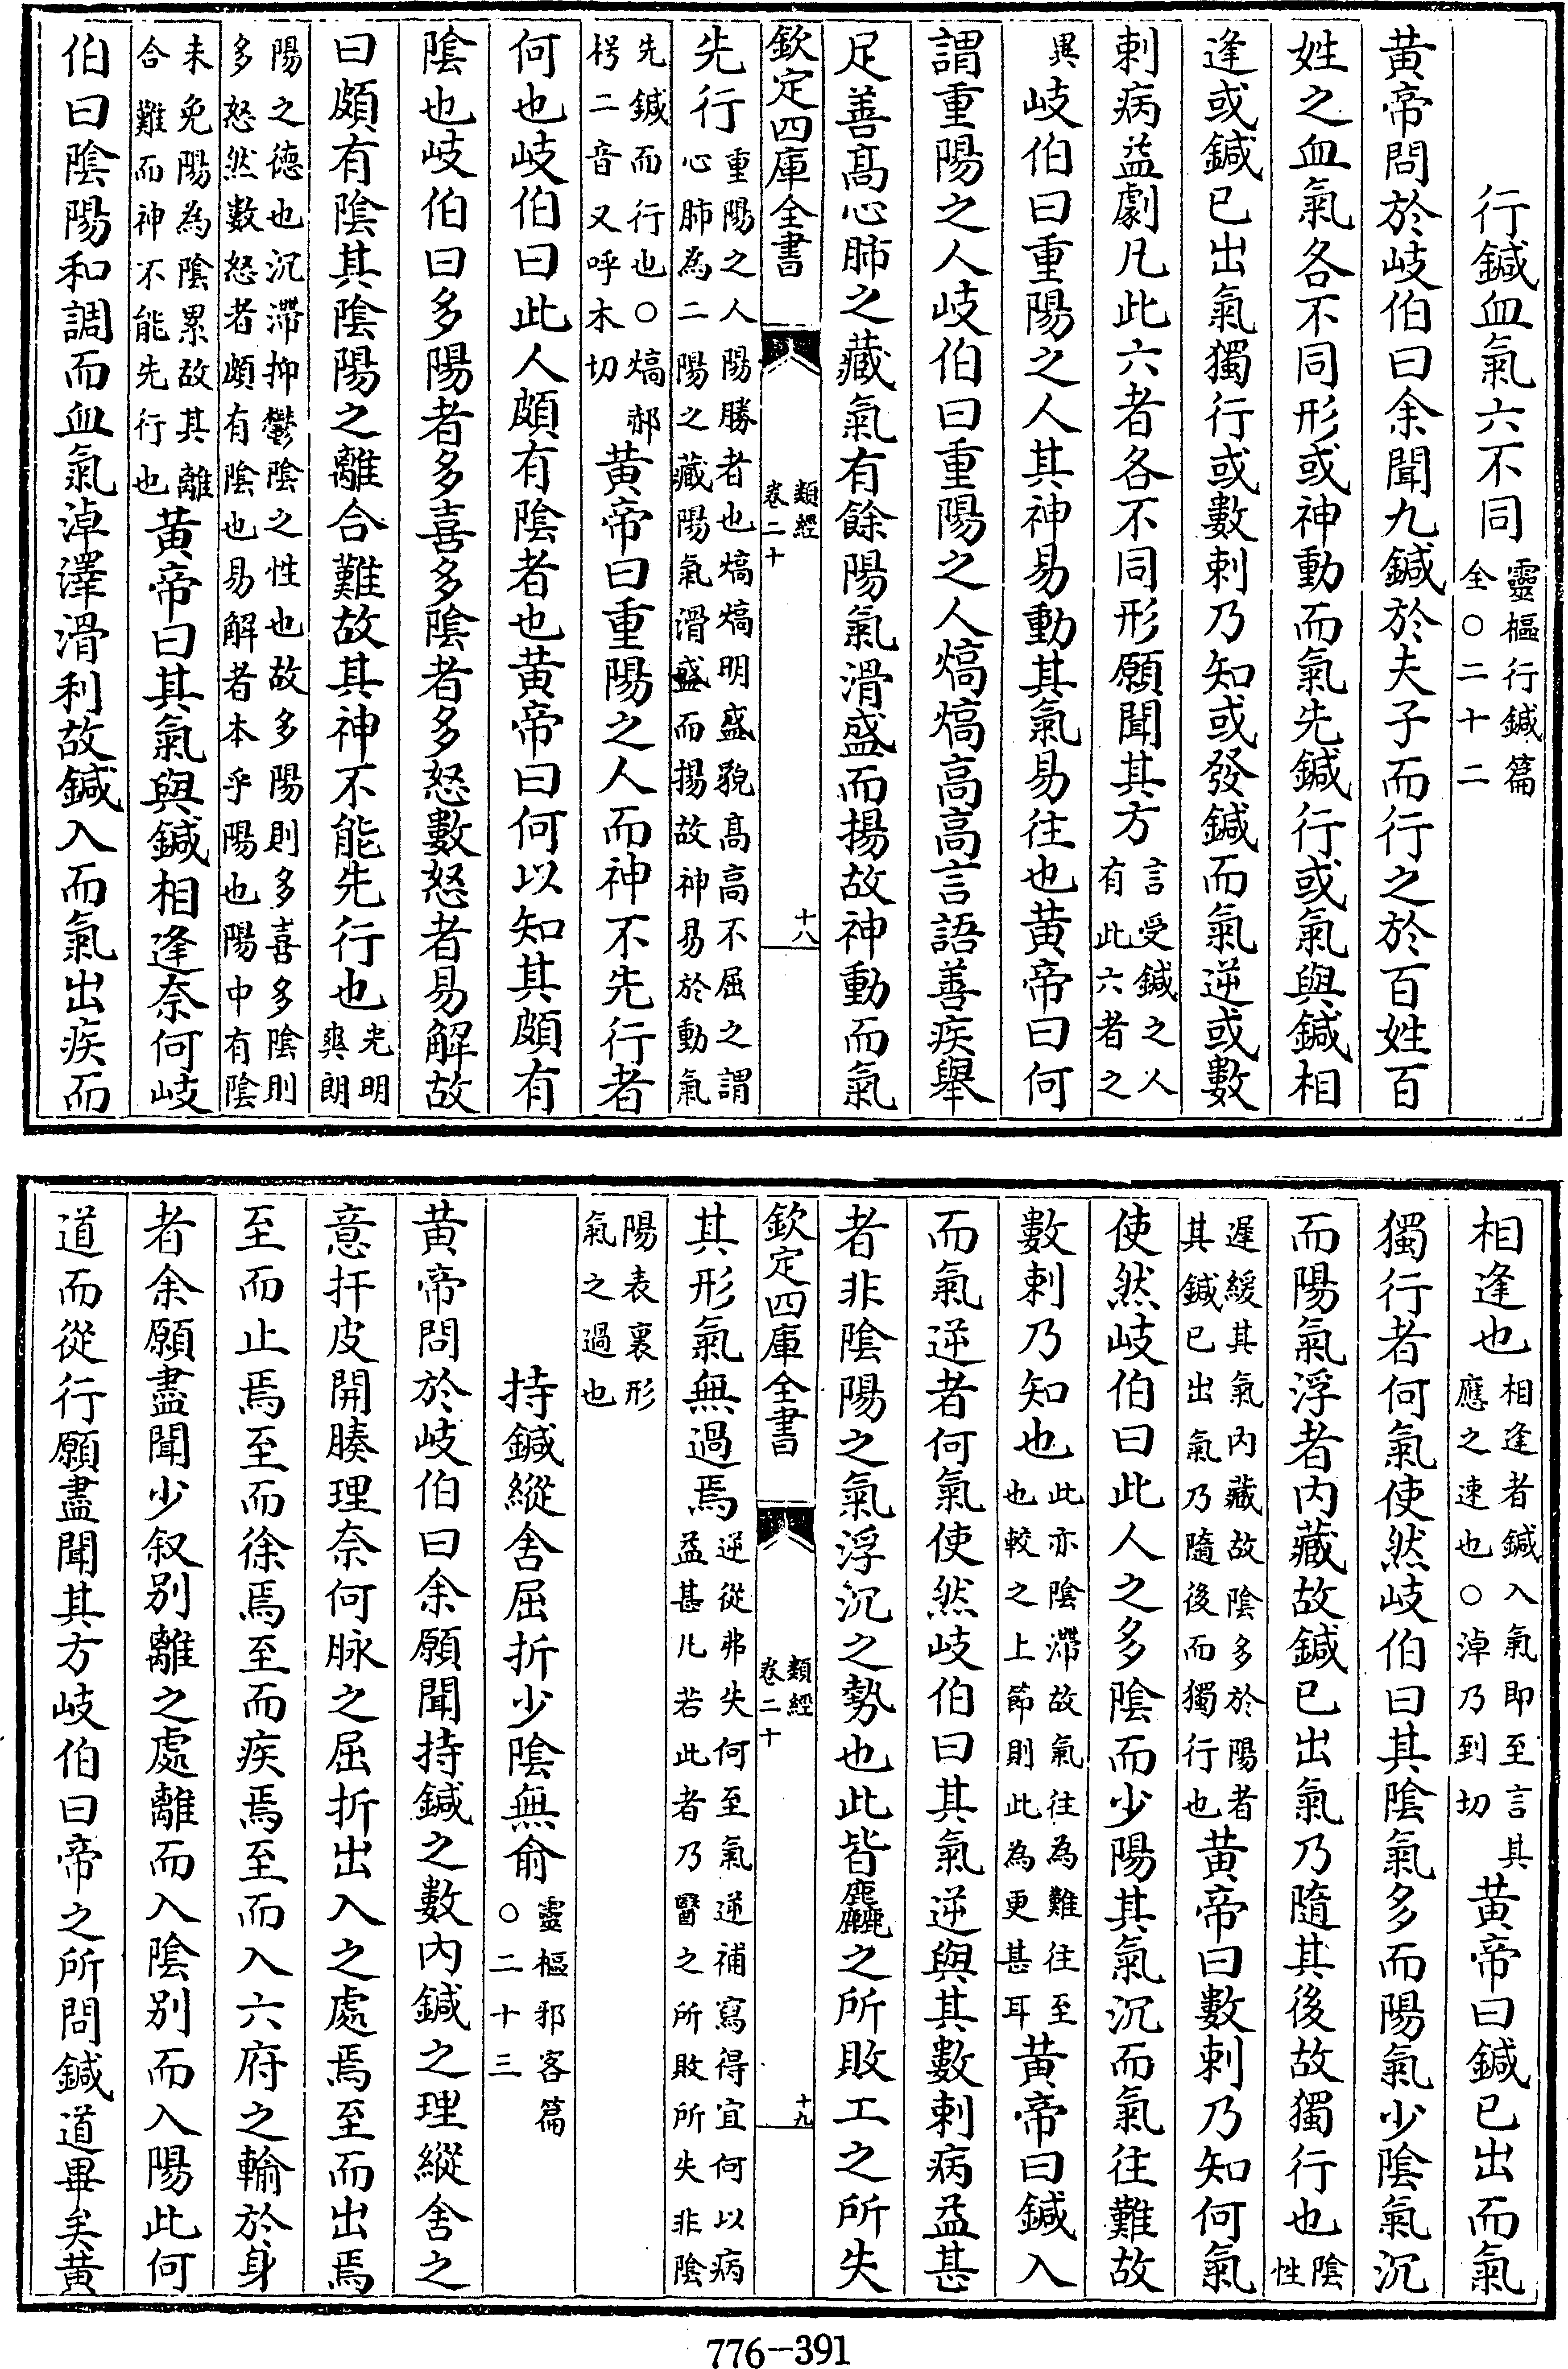 行鍼血氣六不同靈樞行鍼篇全○二十二
黃帝問於岐伯曰余聞九鍼於夫子而行之於百姓百
姓之血氣各不同形或神動而氣先鍼行或氣與鍼相
逢或鍼已出氣獨行或數刺乃知或發鍼而氣逆或數
刺病益劇凡此六者各不同形願聞其方言受鍼之人有此六者之
異岐伯曰重陽之人其神易動其氣易往也黃帝曰何
謂重陽之人岐伯曰重陽之人熇熇高高言語善疾舉
足善高心肺之藏氣有餘陽氣滑盛而揚故神動而氣
欽定四庫全書 類經卷二十 十八
先行重陽之人陽勝者也熇熇明盛貌高高不屈之謂心肺為二陽之藏陽氣滑盛而揚故神易於動氣
先鍼而行也○熇郝枵二音又呼木切黃帝曰重陽之人而神不先行者
何也岐伯曰此人頗有陰者也黃帝曰何以知其頗有
陰也岐伯曰多陽者多喜多陰者多怒數怒者易解故
曰頗有陰其陰陽之離合難故其神不能先行也光明爽朗
陽之德也沉滯抑鬱陰之性也故多陽則多喜多陰則多怒然數怒者頗有陰也易解者本乎陽也陽中有陰
未免陽為陰累故其離合難而神不能先行也黃帝曰其氣與鍼相逢奈何岐
伯曰陰陽和調而血氣淖澤滑利故鍼入而氣出疾而
相逢也相逢者鍼入氣即至言其應之速也○淖乃到切黃帝曰鍼已出而氣
獨行者何氣使然岐伯曰其陰氣多而陽氣少陰氣沉
而陽氣浮者內藏故鍼已出氣乃隨其後故獨行也陰性
遲緩其氣內藏故陰多於陽者其鍼已出氣乃隨後而獨行也黃帝曰數刺乃知何氣
使然岐伯曰此人之多陰而少陽其氣沉而氣往難故
數刺乃知也此亦陰滯故氣往為難往至也較之上節則此為更甚耳黃帝曰鍼入
而氣逆者何氣使然岐伯曰其氣逆與其數刺病益甚
者非陰陽之氣浮沉之勢也此皆麤之所敗工之所失
欽定四庫全書 類經卷二十 十九
其形氣無過焉逆從弗失何至氣逆補寫得宜何以病益甚凡若此者乃醫之所敗所失非陰
陽表裏形氣之過也
持鍼縱舍屈折少陰無俞靈樞邪客篇○二十三
黃帝問於岐伯曰余願聞持鍼之數內鍼之理縱舍之
意扞皮開腠理奈何脉之屈折出入之處焉至而出焉
至而止焉至而徐焉至而疾焉至而入六府之輸於身
者余願盡聞少叙別離之處離而入陰別而入陽此何
道而從行願盡聞其方岐伯曰帝之所問鍼道畢矣黃
776-391